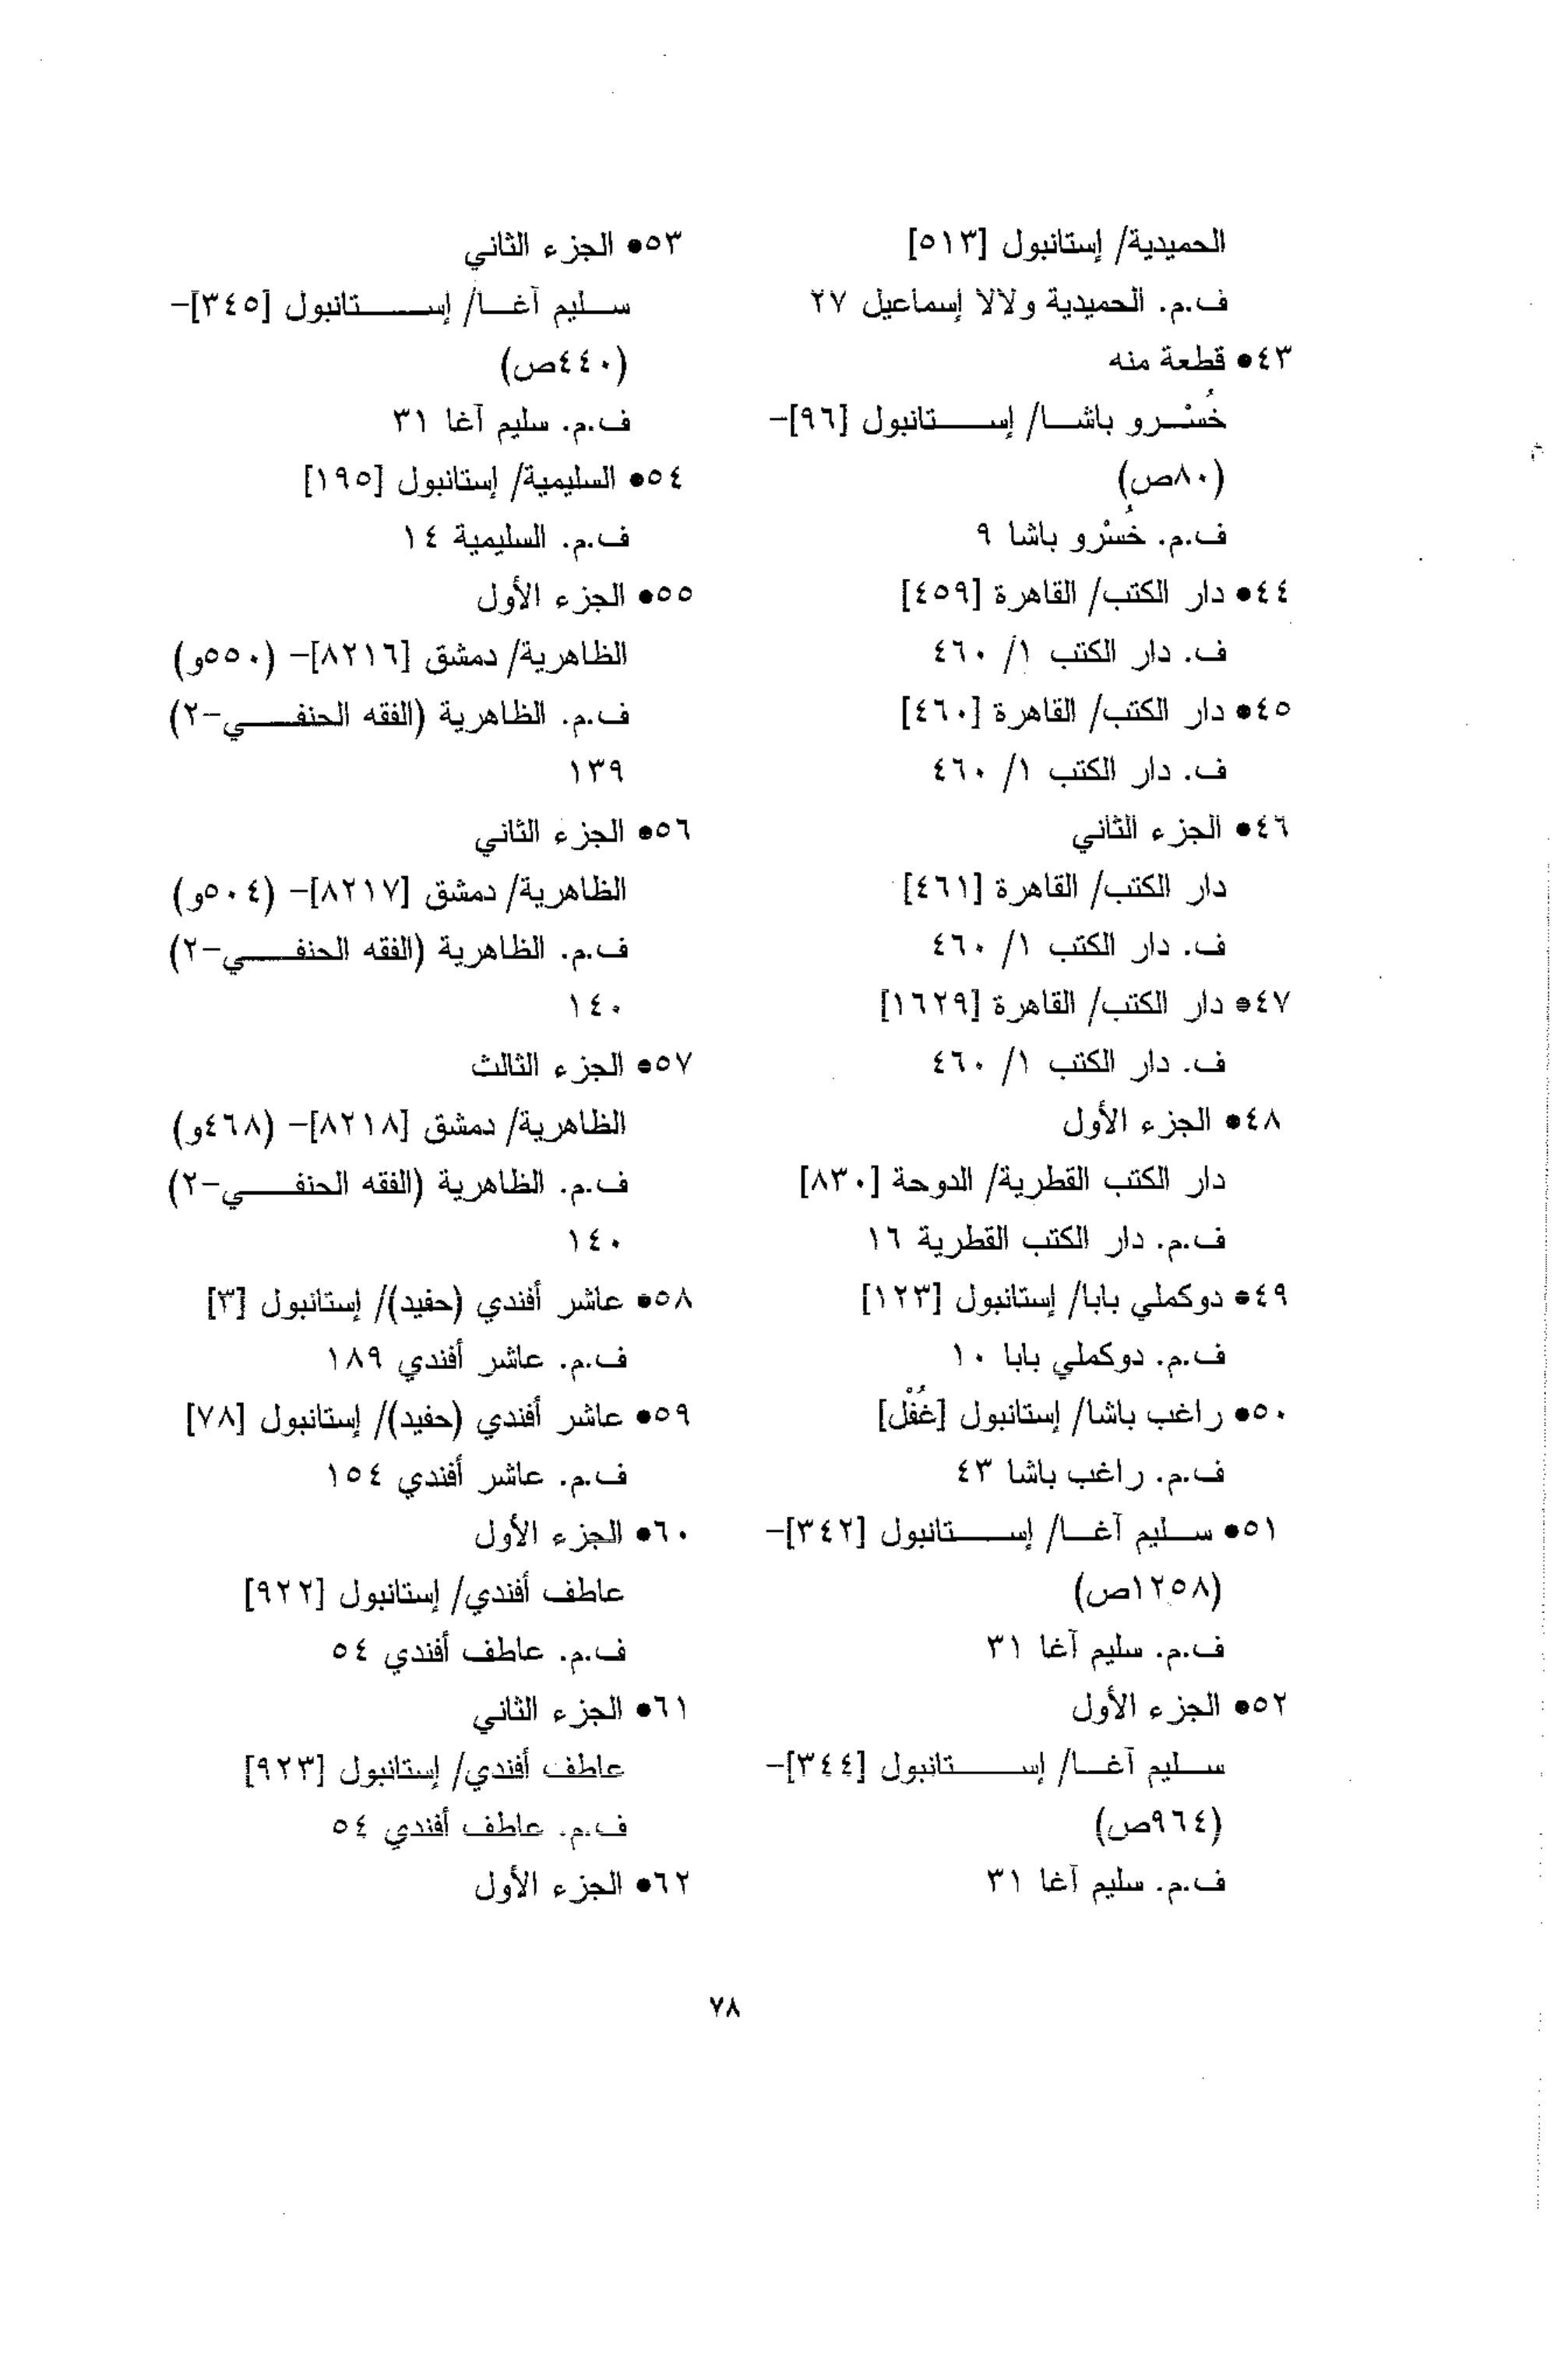 الحميدية/ إستانبول [٥١٣]
ف.م. الحميدية ولالا إسماعيل ٢٧
٤٣● قطعة منه
خُسْرو باشا/ إستانبول [٩٦]-
(٨٠ص)
ف.م. خُسْرو باشا ٩
٤٤● دار الكتب/ القاهرة [٤٥٩]
ف. دار الكتب ١/ ٤٦٠
٤٥● دار الكتب/ القاهرة [٤٦٠]
ف. دار الكتب ١/ ٤٦٠
٤٦● الجزء الثاني
دار الكتب/ القاهرة [٤٦١]
ف. دار الكتب ١/ ٤٦٠
٤٧● دار الكتب/ القاهرة [١٦٢٩]
ف. دار الكتب ١/ ٤٦٠
٤٨● الجزء الأول
دار الكتب القطرية/ الدوحة [٨٣٠]
ف.م. دار الكتب القطرية ١٦
٤٩● دوكملي بابا/ إستانبول [١٢٣]
ف.م. دوكملي بابا ١٠
٥٠● راغب باشا/ إستانبول [غُفْل]
ف.م. راغب باشا ٤٣
٥١● سليم آغا/ إستانبول [٣٤٢]-
(١٢٥٨ص)
ف.م. سليم آغا ٣١
٥٢● الجزء الأول
سليم آغا/ إستانبول [٣٤٤]-
(٩٦٤ص)
ف.م. سليم آغا ٣١
٥٣● الجزء الثاني
سليم آغا/ إستانبول [٣٤٥]-
(٤٤٠ص)
ف.م. سليم آغا ٣١
٥٤● السليمية/ إستانبول [١٩٥]
ف.م. السليمية ١٤
٥٥● الجزء الأول
الظاهرية/ دمشق [٨٢١٦]- (٥٥٠و)
ف.م. الظاهرية (الفقه الحنفي-٢)
١٣٩
٥٦● الجزء الثاني
الظاهرية/ دمشق [٨٢١٧]- (٥٠٤و)
ف.م. الظاهرية (الفقه الحنفي-٢)
١٤٠
٥٧● الجزء الثالث
الظاهرية/ دمشق [٨٢١٨]- (٤٦٨و)
ف.م. الظاهرية (الفقه الحنفي-٢)
١٤٠
٥٨● عاشر أفندي (حفيد)/ إستانبول [٣]
ف.م. عاشر أفندي ١٨٩
٥٩● عاشر أفندي (حفيد)/ إستانبول [٧٨]
ف.م. عاشر أفندي ١٥٤
٦٠● الجزء الأول
عاطف أفندي/ إستانبول [٩٢٢]
ف.م. عاطف أفندي ٥٤
٦١● الجزء الثاني
عاطف أفندي/ إستانبول [٩٢٣]
ف.م. عاطف أفندي ٥٤
٦٢● الجزء الأول
٧٨